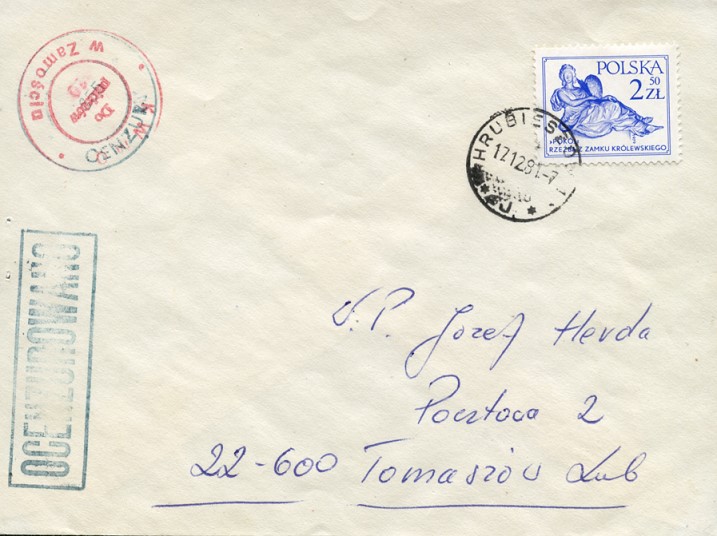 w Zamościu
Do
POLSKA
2 50 ZŁ
RZEŹBA Z ZAMKU KRÓLEWSKIEGO
HRUBIESZÓW
17.12.81-7
OCENZUROWANO
W.P. Józef Herda
Pocztowa 2
22-600 Tomaszów Lub